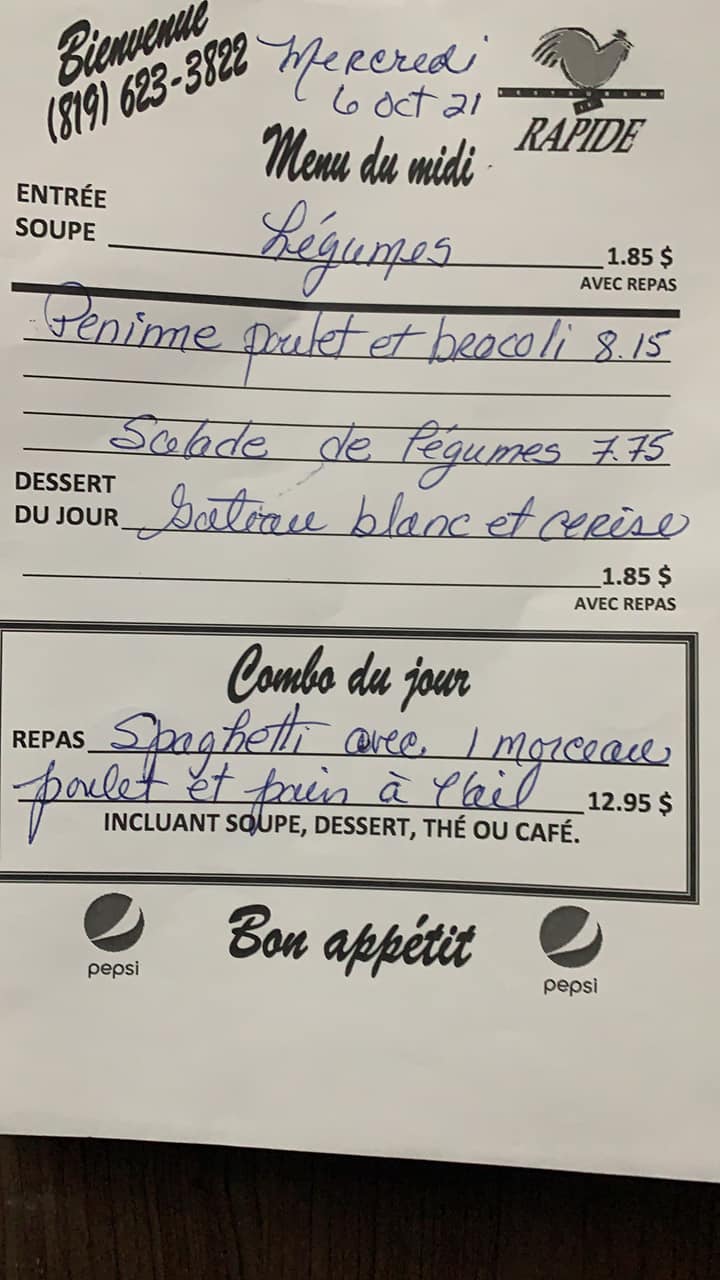 Bienvenue
(819) 623-3822
Mercredi
6 oct 21
RESTAURANT
RAPIDE
Menu du midi
ENTRÉE
SOUPE Légumes 1.85 $
AVEC REPAS
Peninne poulet et brocoli 8.15
Salade de légumes 7.75
DESSERT
DU JOUR Gateau blanc et cerise
1.85 $
AVEC REPAS
Combo du jour
REPAS Spaghetti avec 1 morceau
poulet et pain à l'ail 12.95 $
INCLUANT SOUPE, DESSERT, THÉ OU CAFÉ.
Bon appétit
pepsi
pepsi